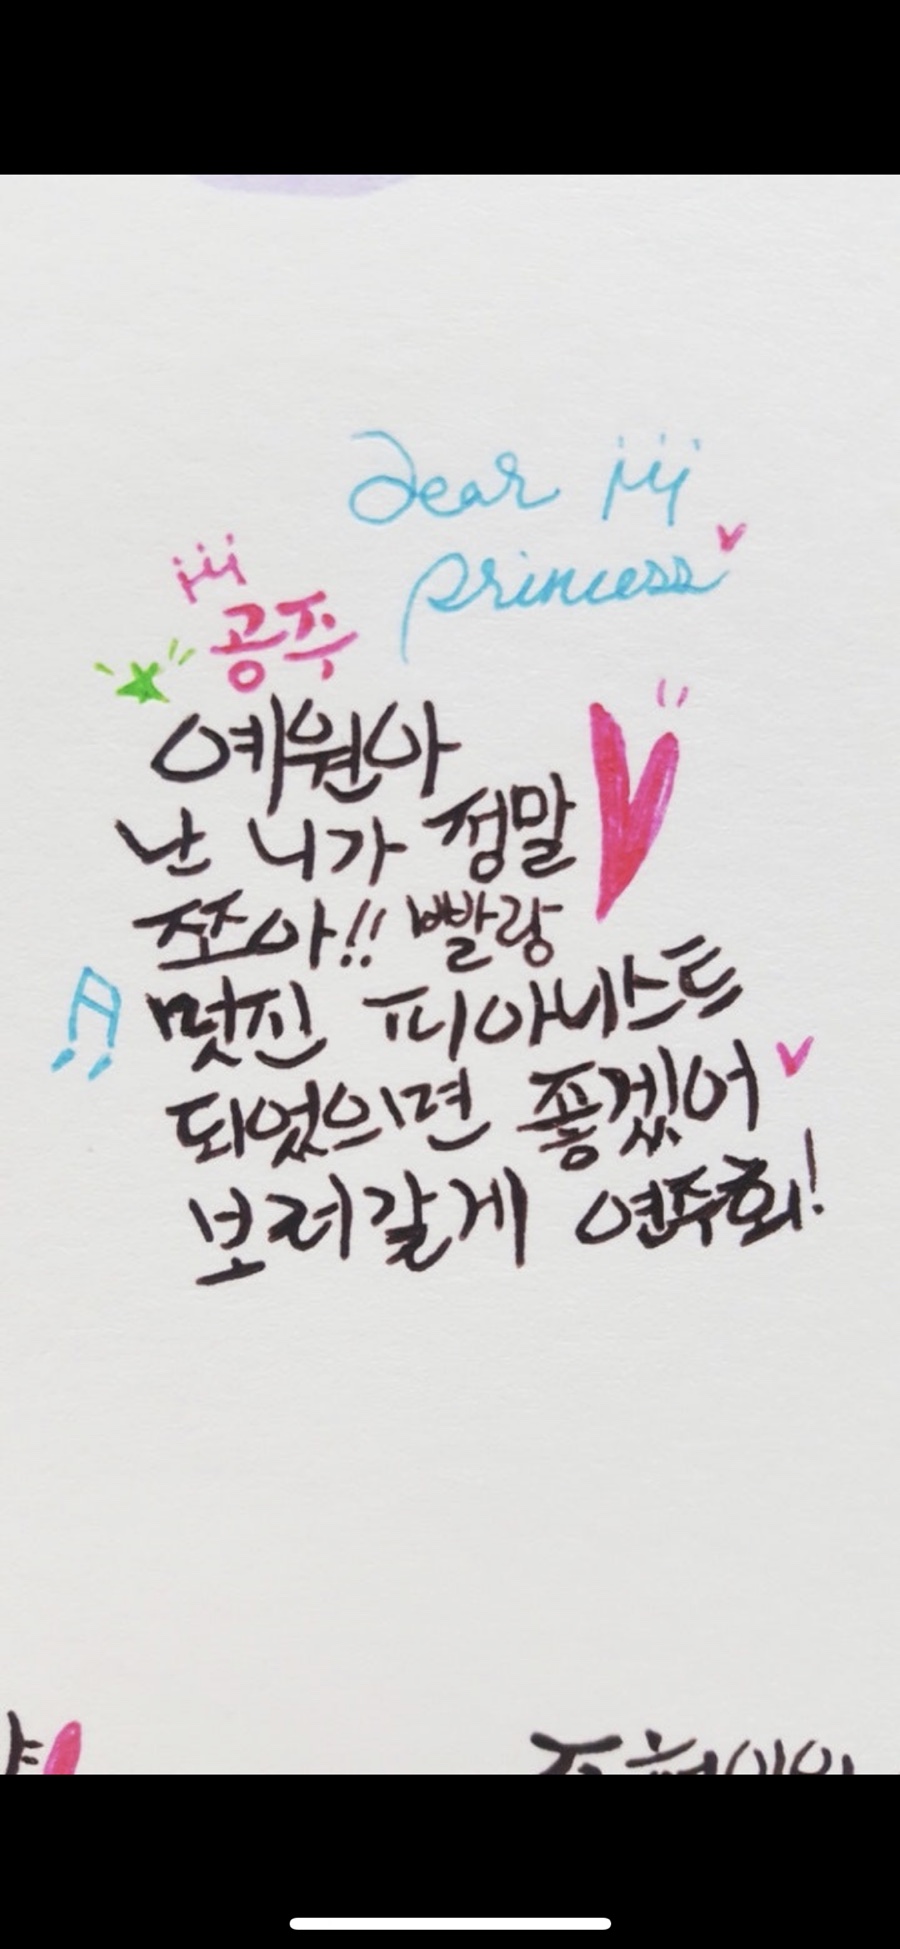 Dear
princess
공주
예원아
난 니가 정말
쪼아!! 빨랑
멋진 피아니스트
되었으면 좋겠어
보러갈게 연주회!